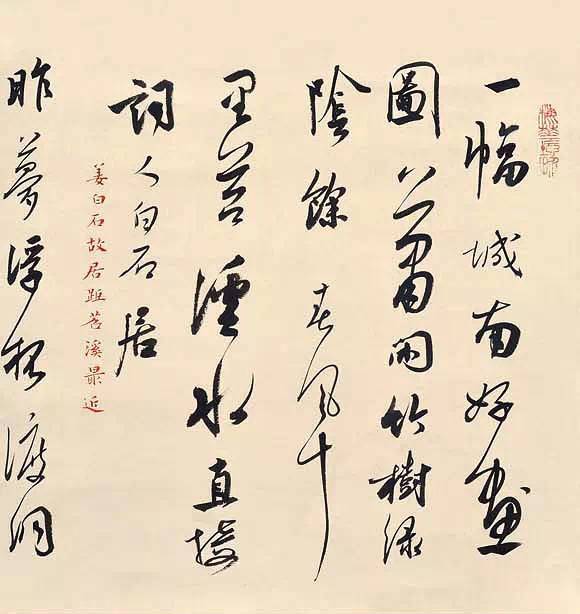 一幅城南好畫
圖蕭閒竹樹綠
陰餘春風十
里苕水直接
詞人白石居
姜白石故居距苕溪最近
昨夢浮渡洞